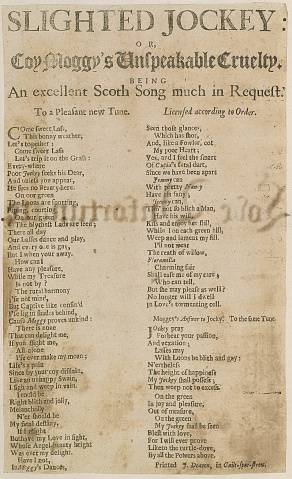 SLIGHTED JOCKEY:
OR,
Coy Moggy's Unspeakable Cruelty.
BEING
An excellent Scoth Song much in Request.
To a Pleasant new Tune.
Licensed according to Order.
COme sweet Lass,
This bonny weather,
Let's together;
Come sweet Lass
Let's trip it on the Grass:
Every-where
Poor Jockey seeks his Dear,
And unless you appear,
He sees no beauty here.
On our green
The Loons are sporting,
Piping, courting
On our green
The blythest Lads are seen;
There all day
Our Lasses dance and play,
And every one is gay,
But I when your away.
How can I
Have any pleasure,
While my Treasure
Is not by?
The rural harmony
I'se not mind,
But Captive like confin'd
I'se lig in shades behind,
Cause Moggy proves unkind:
There is none
That can delight me,
If you slight me,
All alone
I'se ever make my moan;
Life's a pain
Since by your coy disdain,
Like an unhappy Swain,
I sigh and weep in vain.
I could be
Right blith and jolly,
Melancholly
N'er should be
My fatal destiny,
If I might
But have my Love in sight,
Whose Angel-beauty bright
Was ever my delight.
Have I not,
In Moggy's Dances,
Seen those glances,
Which has shot,
And, like a Fowler, cot
My poor Heart;
Yes, and I feel the smart
Of Cupid's fatal dart,
Since we have been apart
Jemmy can
With pretty Nancy
Have his fancy;
Jemmy can,
As good as blith a Man,
Have his will,
Kiss and enjoy her still,
While I on each green hill,
Weep and lament my fill.
I'll not wear
The wreath of willow,
Charming fair
Shall ease me of my care;
Who can tell,
But she may please as well?
No longer will I dwell
in Love's tormenting cell.
Moggy's Answer to Jockey: To the same Tune
JOckey pray
Forbear your passion,
And vexation;
Laises may
With Loons be blith and gay:
Ne'rtheless
The height of happiness
My Jockey shall possess;
Then weep not to excess.
On the green
In joy and pleasure,
Out of measure,
On the green
My Jockey shall be seen
Blest with love,
For I will ever prove
Like to the turtle-dove,
By all the Powers above.
Printed J. Deacon, in Guilt-spur-street.